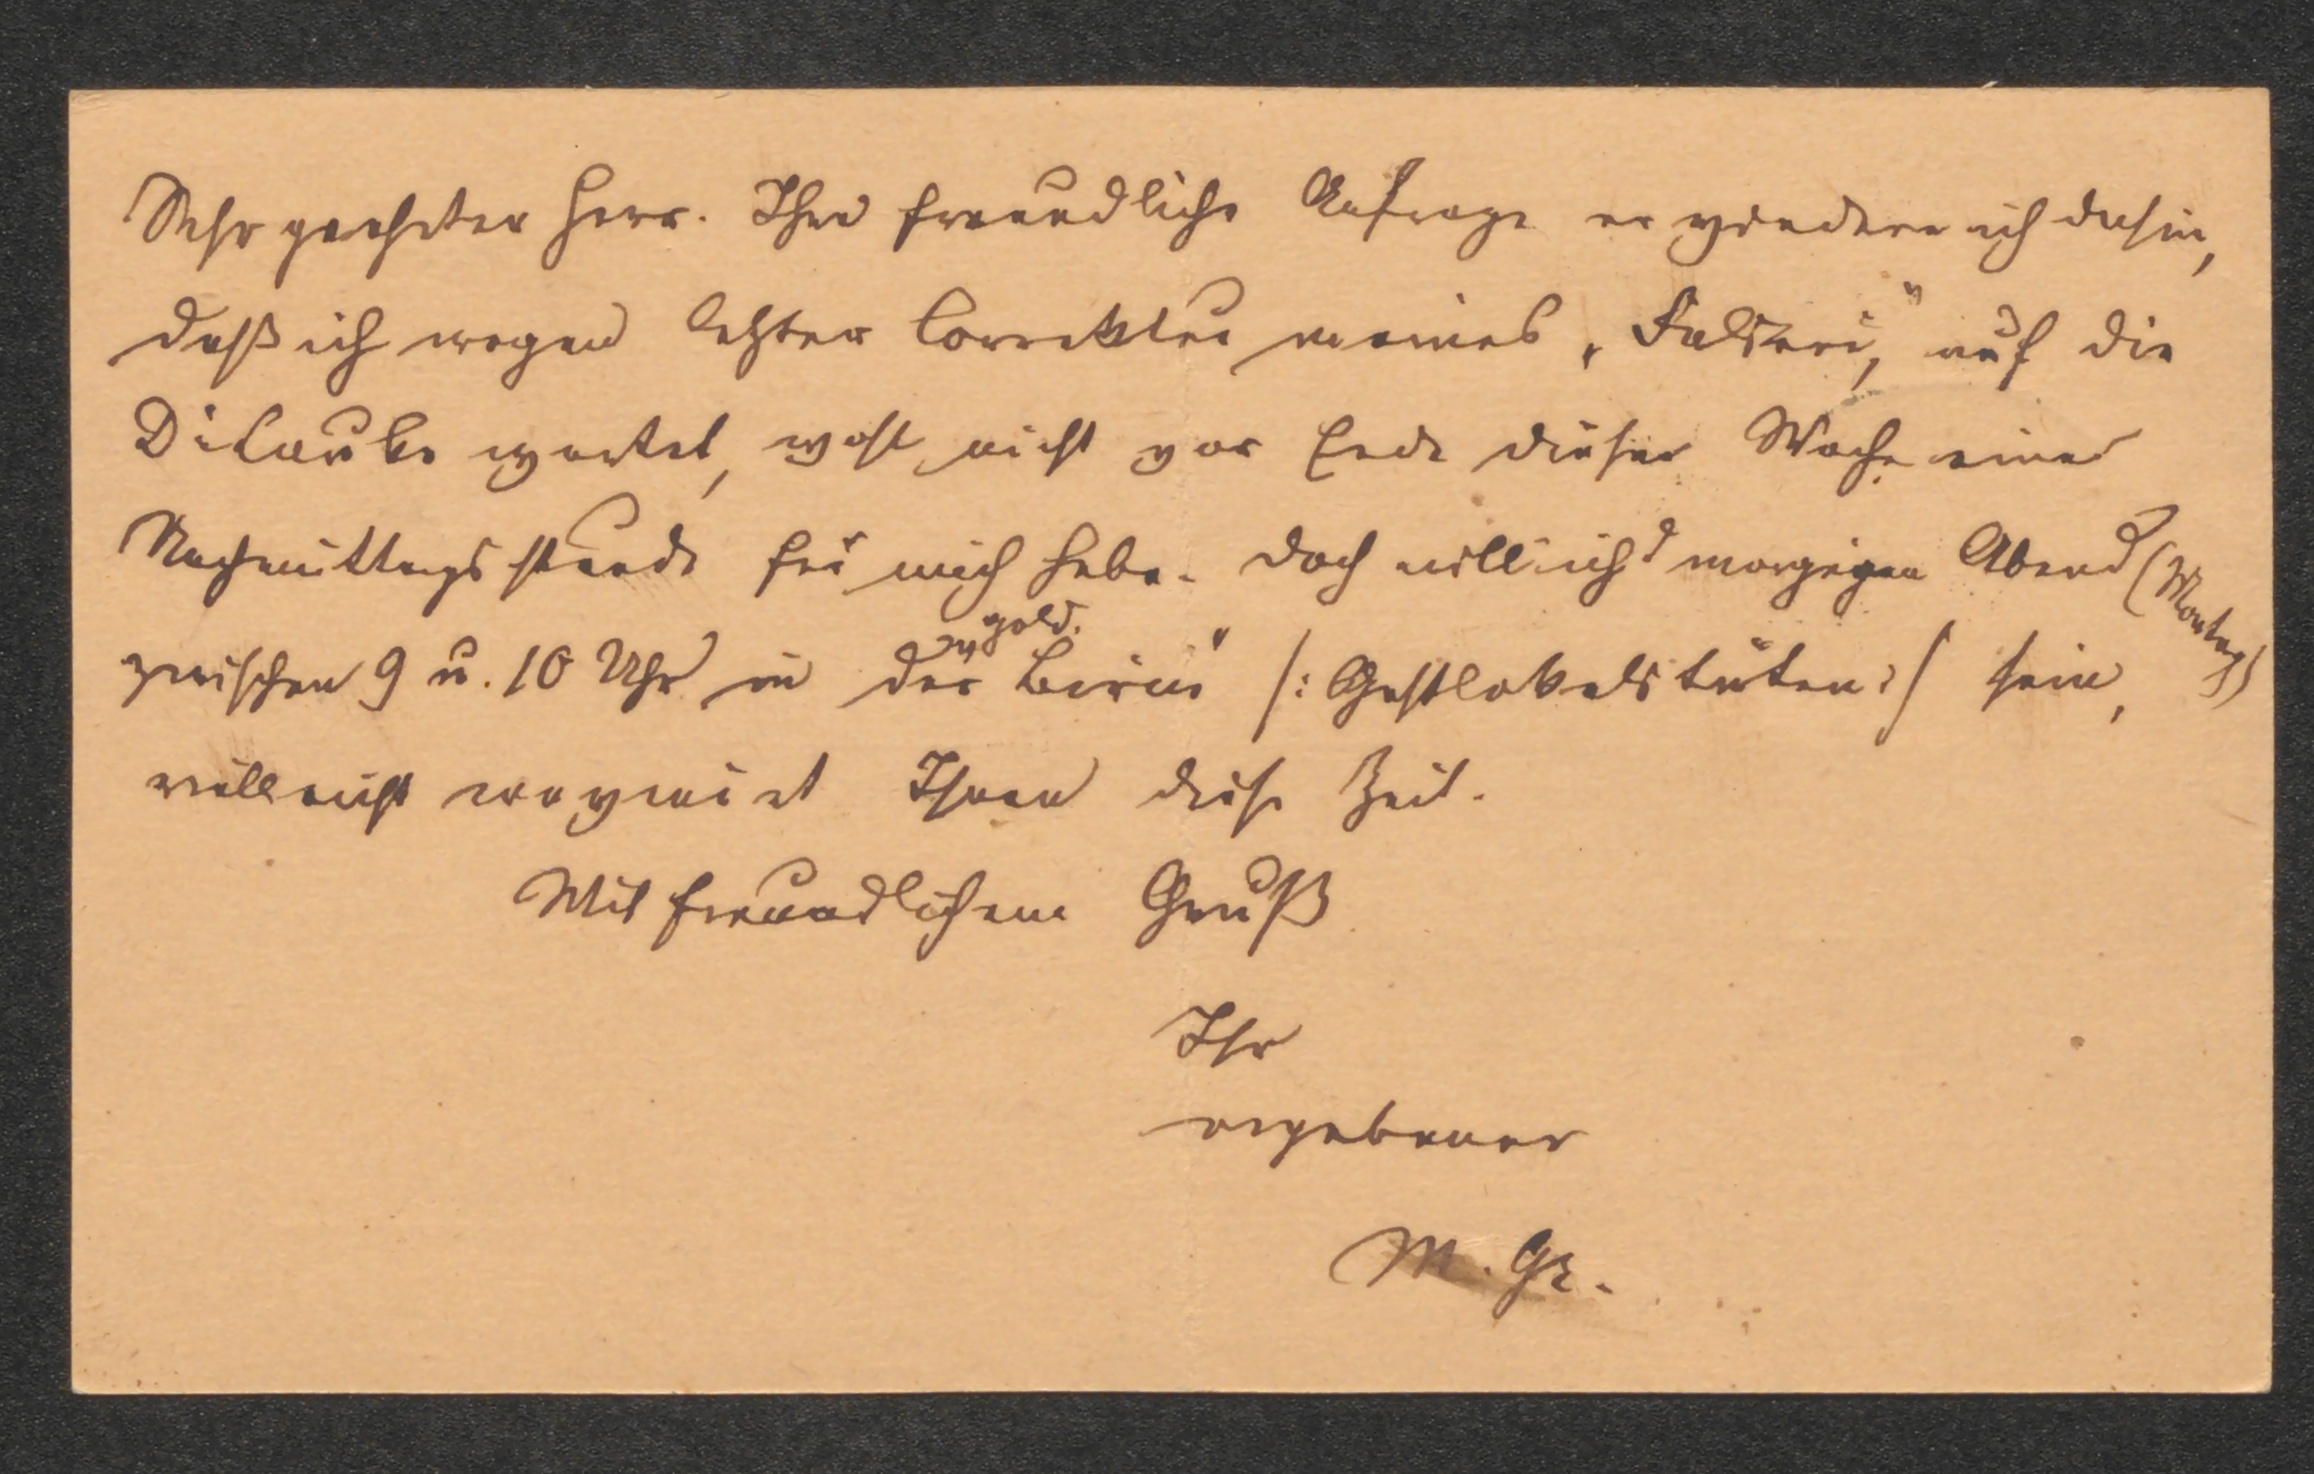 Sehr geehrter Herr. Ihre freundliche Anfrage erwiedere ich dahin,
daß ich wegen letzter Correktur meines auf die
wartet, wohl nicht vor Ende dieser Woche eine
Nachmittagsstunde für mich habe. Doch will ich morgigen Abend (Montag)
zwischen 9 u. 10 Uhr in der „gold. Birne" /: :/ sein,
vielleicht convenirt Ihnen diese Zeit.
Mit freundlichem Gruß
Ihr
ergebener
M. Gr.